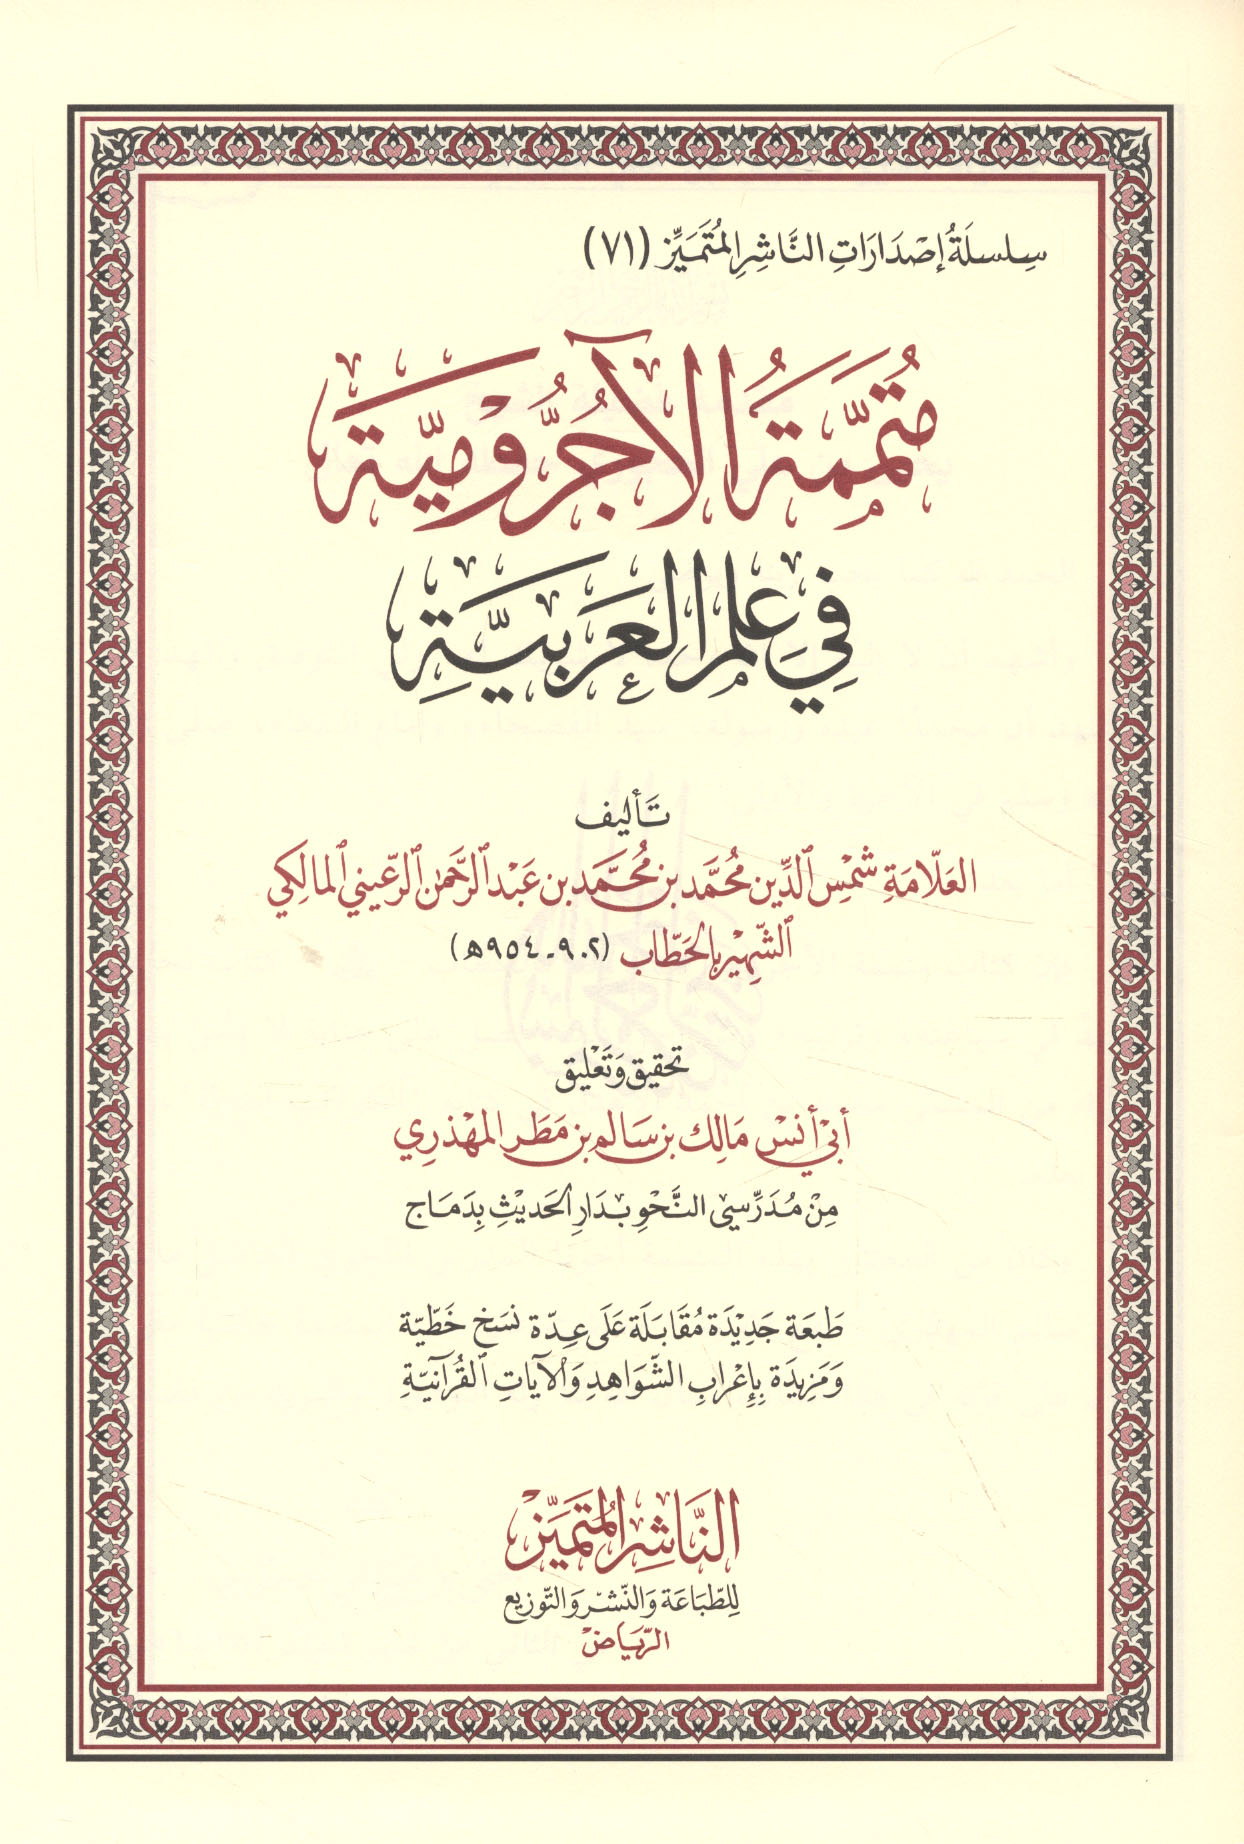 سِلسلَةُ إصْدَارَاتِ النَّاشِرِ المُتَمَيِّز (٧١)
مُتَمِّمَةُ الآجُرُّومِيَّة
فِي عِلمِ العَرَبيَّةِ
تَأليف
العَلّامَةِ شَمْسِ الدِّين مُحمَّد بن مُحمَّد بن عَبْد الرَّحمٰن الرّعيني المالِكي
الشّهِيْر بالحَطّاب (٩٠٢-٩٥٤هـ)
تحقيق وَتَعْليق
أبيْ أنسْ مَالِك بن سَالم بن مَطَر المهْذرِي
مِنْ مُدَرِّسيِ النَّحْوِ بدَارِ الحَديْثِ بِدَمَاج
طَبعَة جَدِيْدَة مُقَابَلَة عَلَى عِدّة نسَخ خَطّيّة
وَمَزِيدَة بِإعْرابِ الشّوَاهِدِ وَالآيَاتِ القُرآنيّةِ
النَّاشِرُ المُتَمَيِّزْ
لِلطّبَاعَة وَالنّشْر وَالتّوزيع
الرّيَاضْ